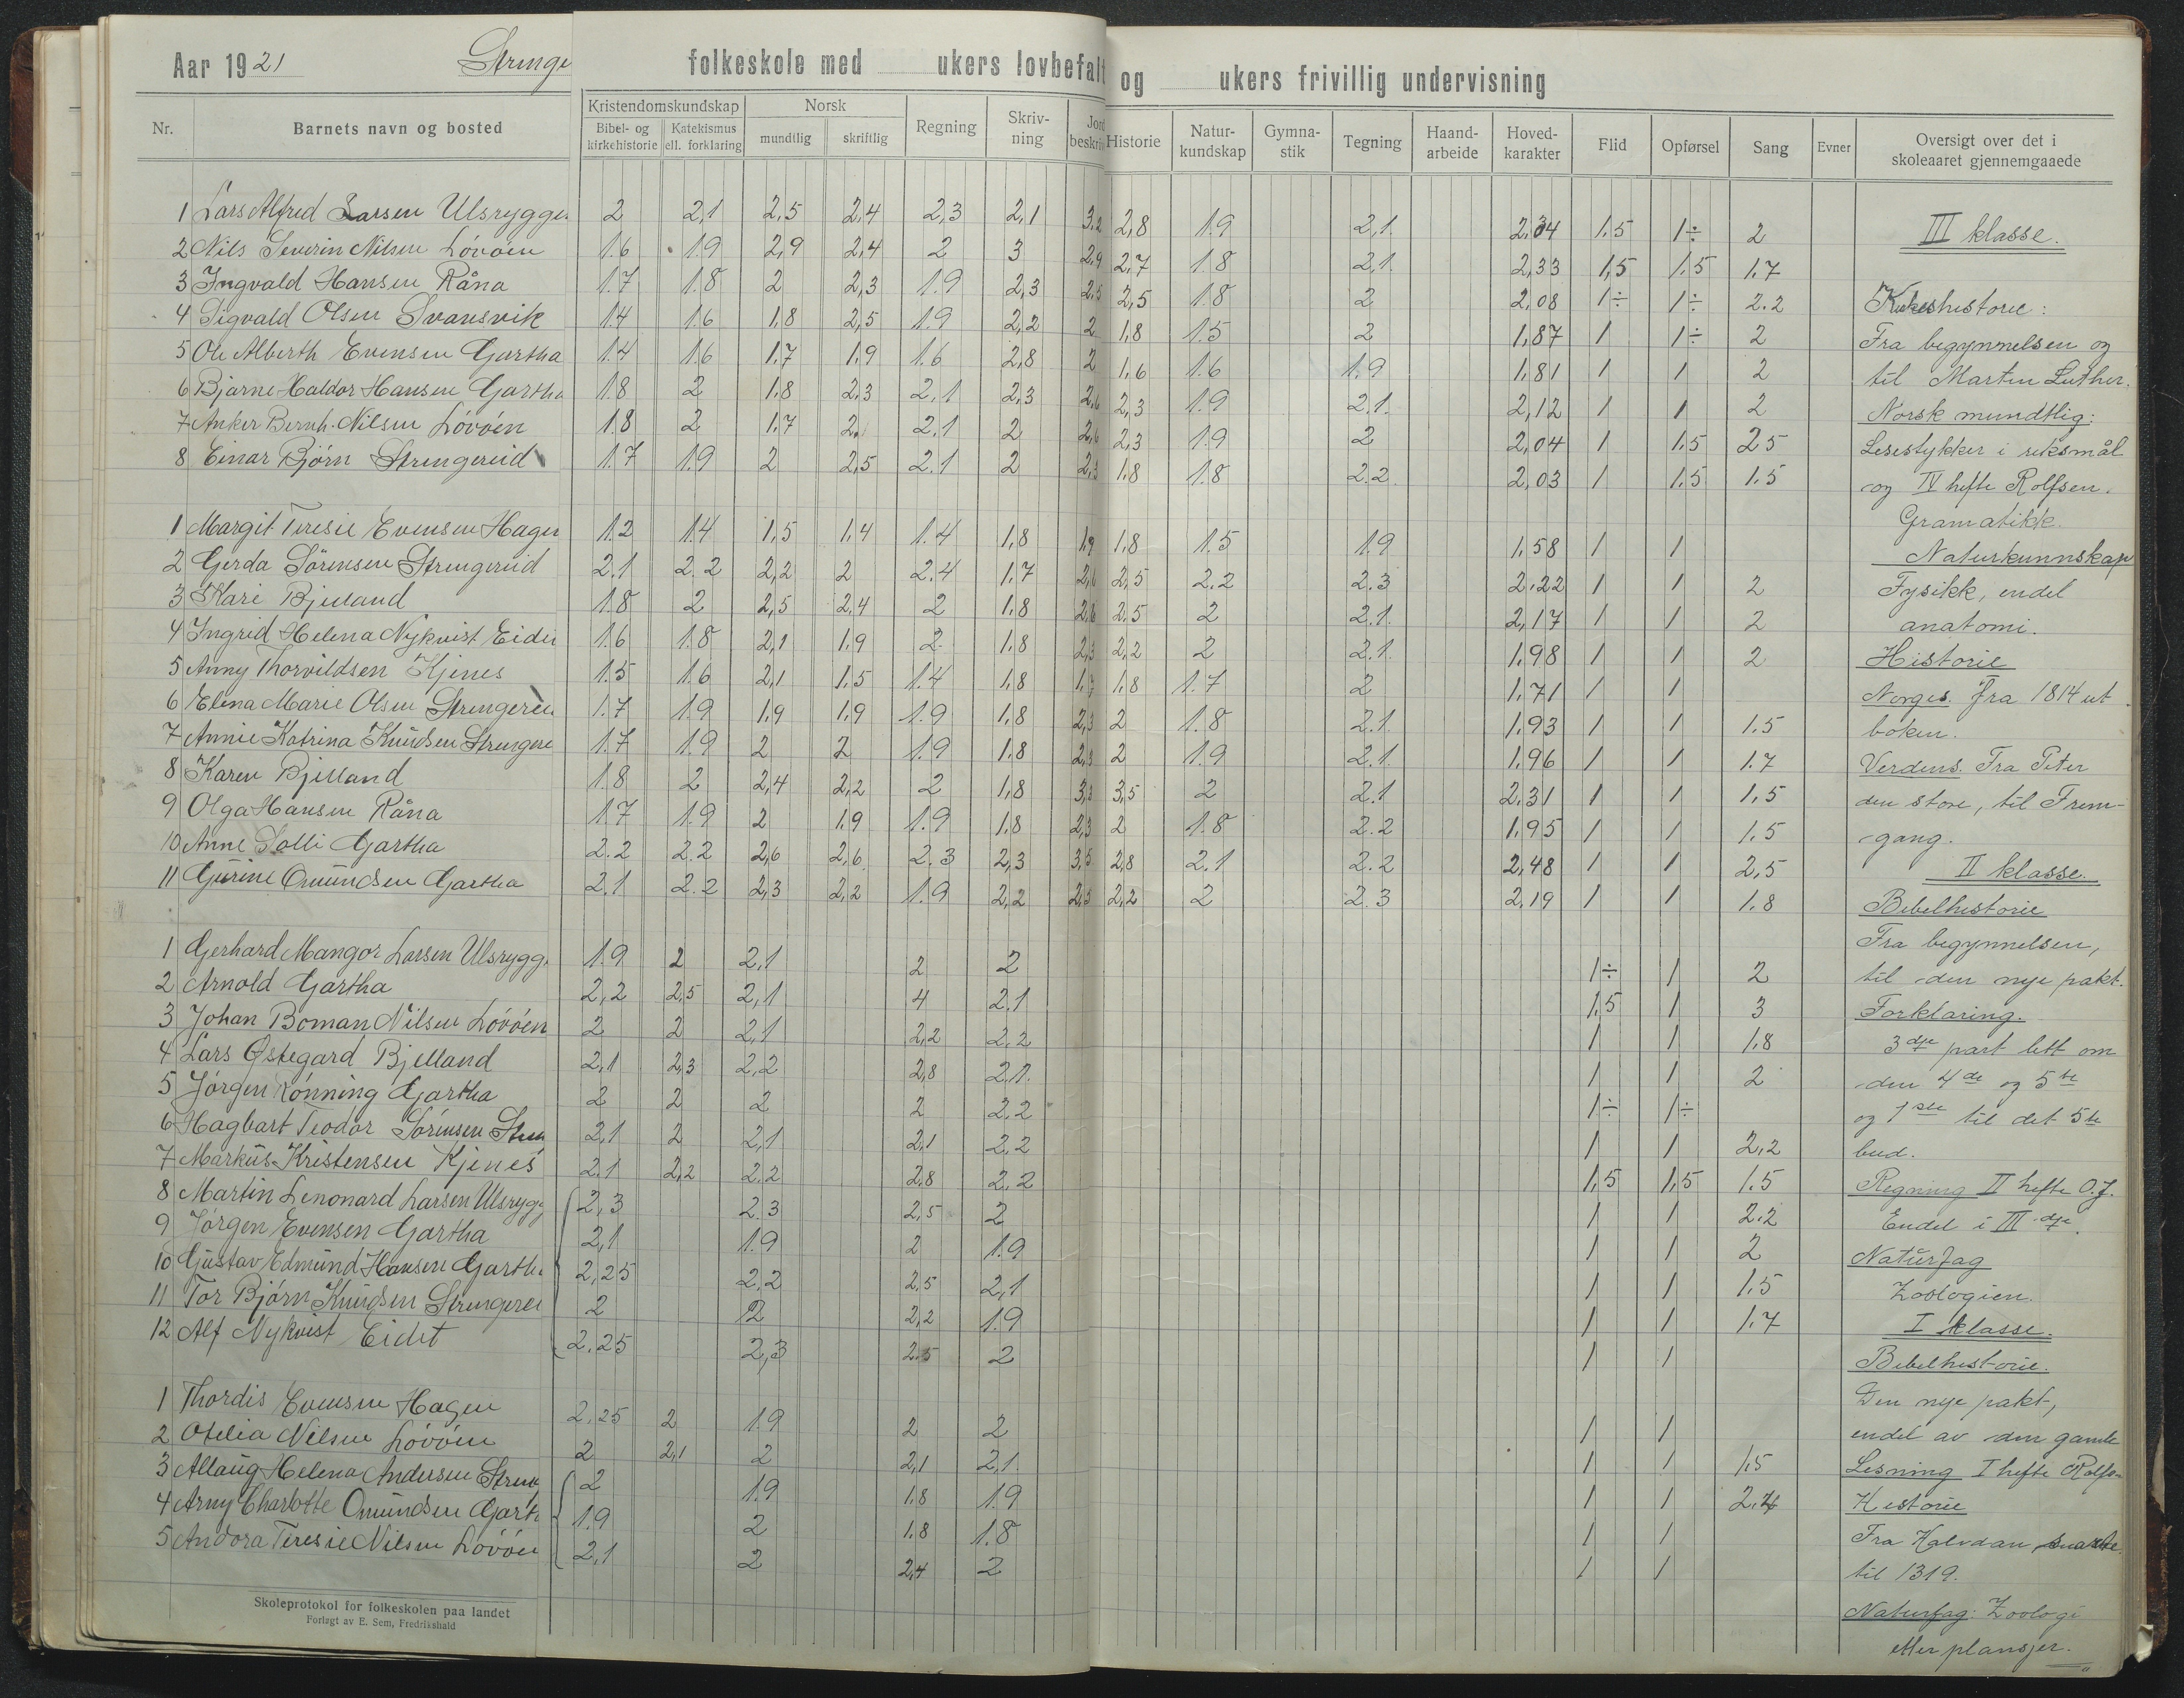 Aar 1921 Strenge folkeskole med ukers lovbefalt og ukers frivillig undervisning
Nr. Barnets navn og bosted Kristendomskundskap Norsk Regning Skriv-ning Jord beskriv Historie Natur-kundskap Gymna-stik Tegning Haand-arbeide Hoved-karakter Flid Opførsel Sang Evner Oversigt over det i skoleaaret gjennemgaaede
Bibel- og kirkehistorie Katekismus ell. forklaring mundtlig skriftlig
1 Lars Alfred Larsen Ulsrygge 2 2,1 2,5 2,4 2,3 2,1 3,2 2,8 1.9 2,1 2,04 1.5 1÷ 2
2 Nils Severin Nilsen Lövöen 1.6 1.9 2,9 2,4 2 3 2,9 2,7 1.8 2,1 2,33 1,5 1.5 1.7
3 Ingvald Hansen Råna 1.7 1.8 2 2,3 1.9 2,3 2,5 2,5 1.8 2 2,08 1÷ 1÷ 2.2
4 Sigvald Olsen Svansvik 1.4 1.6 1,8 2,5 1.9 2,2 2 1,8 1.5 2 1,87 1 1÷ 2
5 Ole Alberth Evensen Gartha 1.4 1.6 1.7 1.9 1.6 2,8 2 1,6 1.6 1.9 1,81 1 1 2
6 Bjarne Haldor Hansen Gartha 1.8 2 1,8 2,3 2,1 2,3 2,6 2,3 1.9 2.1 2,12 1 1 2
7 Anker Bernh. Nilsen Lövöen 1.8 2 1.7 2 2.1 2 2,6 2,3 1.9 2 2,04 1 1.5 2.5
8 Einar Björn Strengereid 1.7 1.9 2 2,5 2.1 2 2,3 1,8 1.8 2.2 2,03 1 1.5 1.5
1 Margit Teresie Evensen Hagen 1.2 1.4 1,5 1,4 1.4 1,8 1,9 1,8 1.5 1.9 1,58 1 1
2 Gerda Sörensen Strengereid 2.1 2.2 2,2 2 2.4 1.7 2,6 2,5 2.2 2.3 2.22 1 1 2
3 Kari Bjelland 1.8 2 2,5 2,4 2 1,8 2,6 2,5 2 2.1 2,17 1 1 2
4 Ingrid Helena Nykvist Eidet 1.6 1.8 2,1 1.9 2 1,8 2,3 2,2 2 2.1 1,98 1 1 2
5 Anny Thorvildsen Kjenes 1.5 1.6 2,1 1.5 1.4 1,8 1,7 1,8 1.7 2 1,71 1 1
6 Elena Marie Olsen Strengerei 1.7 1.9 1,9 1,9 1.9 1,8 2,3 2 1.8 2.1 1,93 1 1 1.5
7 Annie Katrina Knudsen Strengere 1.7 1.9 2 2 1.9 1,8 2,3 2 1.9 2.1 1,96 1 1 1.7
8 Karen Bjelland 1.8 2 2,4 2,2 2 1,8 3,3 3,5 2 2.1 2,31 1 1 1,5
9 Olga Hansen Råna 1.7 1.9 2 1.9 1.9 1,8 2,3 2 1.8 2.2 1,95 1 1 1.5
10 Anne Solli Gartha 2.2 2.2 2,6 2,6 2.3 2,3 3,5 2,8 2.1 2.2 2,48 1 1 2,5
11 Gurine Omundsen Gartha 2.1 2.2 2,3 2,2 1.9 2,2 2,3 2,2 2 2.3 2,19 1 1 1.8
1 Gerhard Mangor Larsen Ulsrygg 1.9 2 2,1 2 2 1÷ 1 2
2 Arnold Gartha 2,2 2,5 2,1 4 2.1 1,5 1 3
3 Johan Boman Nilsen Lövöen 2 2 2,1 2,2 2.2 1 1 1.8
4 Lars Østegard Bjelland 2,1 2,3 2,2 2,8 2.1 1 1 2
5 Jörgen Rönning Gartha 2 2 2 2 2.2 1÷ 1÷
6 Hagbart Teodor Sörensen Stren 2,1 2 2,1 2,1 2.2 1 1 2,2
7 Markus Kristensen Kjenes 2.1 2,2 2.2 2,8 2.2 1,5 1,5 1.5
8 Martin Lenonard Larsen Ulsrygg 2,3 2.3 2,5 2 1 1 2.2
9 Jörgen Evensen Gartha 2,1 1.9 2 1.9 1 1 2
10 Gustav Edmund Hansen Gartha 2,25 2.2 2,5 2,1 1 1 1.5
11 Tor Björn Knudsen Strengerei 2 2 2,2 1.9 1 1 1.7
12 Alf Nykvist Eidet 2.25 2,3 2.5 2 1 1
1 Thordis Evensen Hagen 2.25 2 1.9 2 2 1 1
2 Otelia Nilsen Lövöen 2 2,1 2 2,1 2,1 1 1 1,5
3 Allaug Helena Andersen Streng 2 1.9 1.8 1.9 1 1 2.4
4 Arny Charlotte Omundsen Garth 1.9 2 1.8 1.8 1 1
5 Andora Teresie Nilsen Lövöen 2,1 2 2,4 2 1 1
III klasse.
Kirkeshistorie:
Fra begynnelsen og
til Martin Luther.
Norsk mundtlig:
Lesestykker i riksmål
og IV hefte Rolfsen.
Gramatikk.
Naturkunnskap
Fysikk, endel
anatomi.
Historie
Norges. Fra 1814 ut
boken.
Verdens. Fra Peter
den store, til Frem-
gang.
II klasse.
Bibelhistorie
Fra begynnelsen,
til den nye pakt.
Forklaring.
3dje part lett om
den 4de og 5te
og 1ste til det 5te
bud.
Regning II hefte O.J.
Endel i III dje.
Naturfag
Zoologien.
I klasse.
Bibelhistorie.
Den nye pakt,
endel av den gamle
Lesning I hefte Rolfsen
Historie
Fra Halvdan svarte
til 1319.
Naturfag: Zoologi
etter plansjer.
Skoleprotokol for folkeskolen paa landet
Forlagt av E. Sem, Fredrikshald